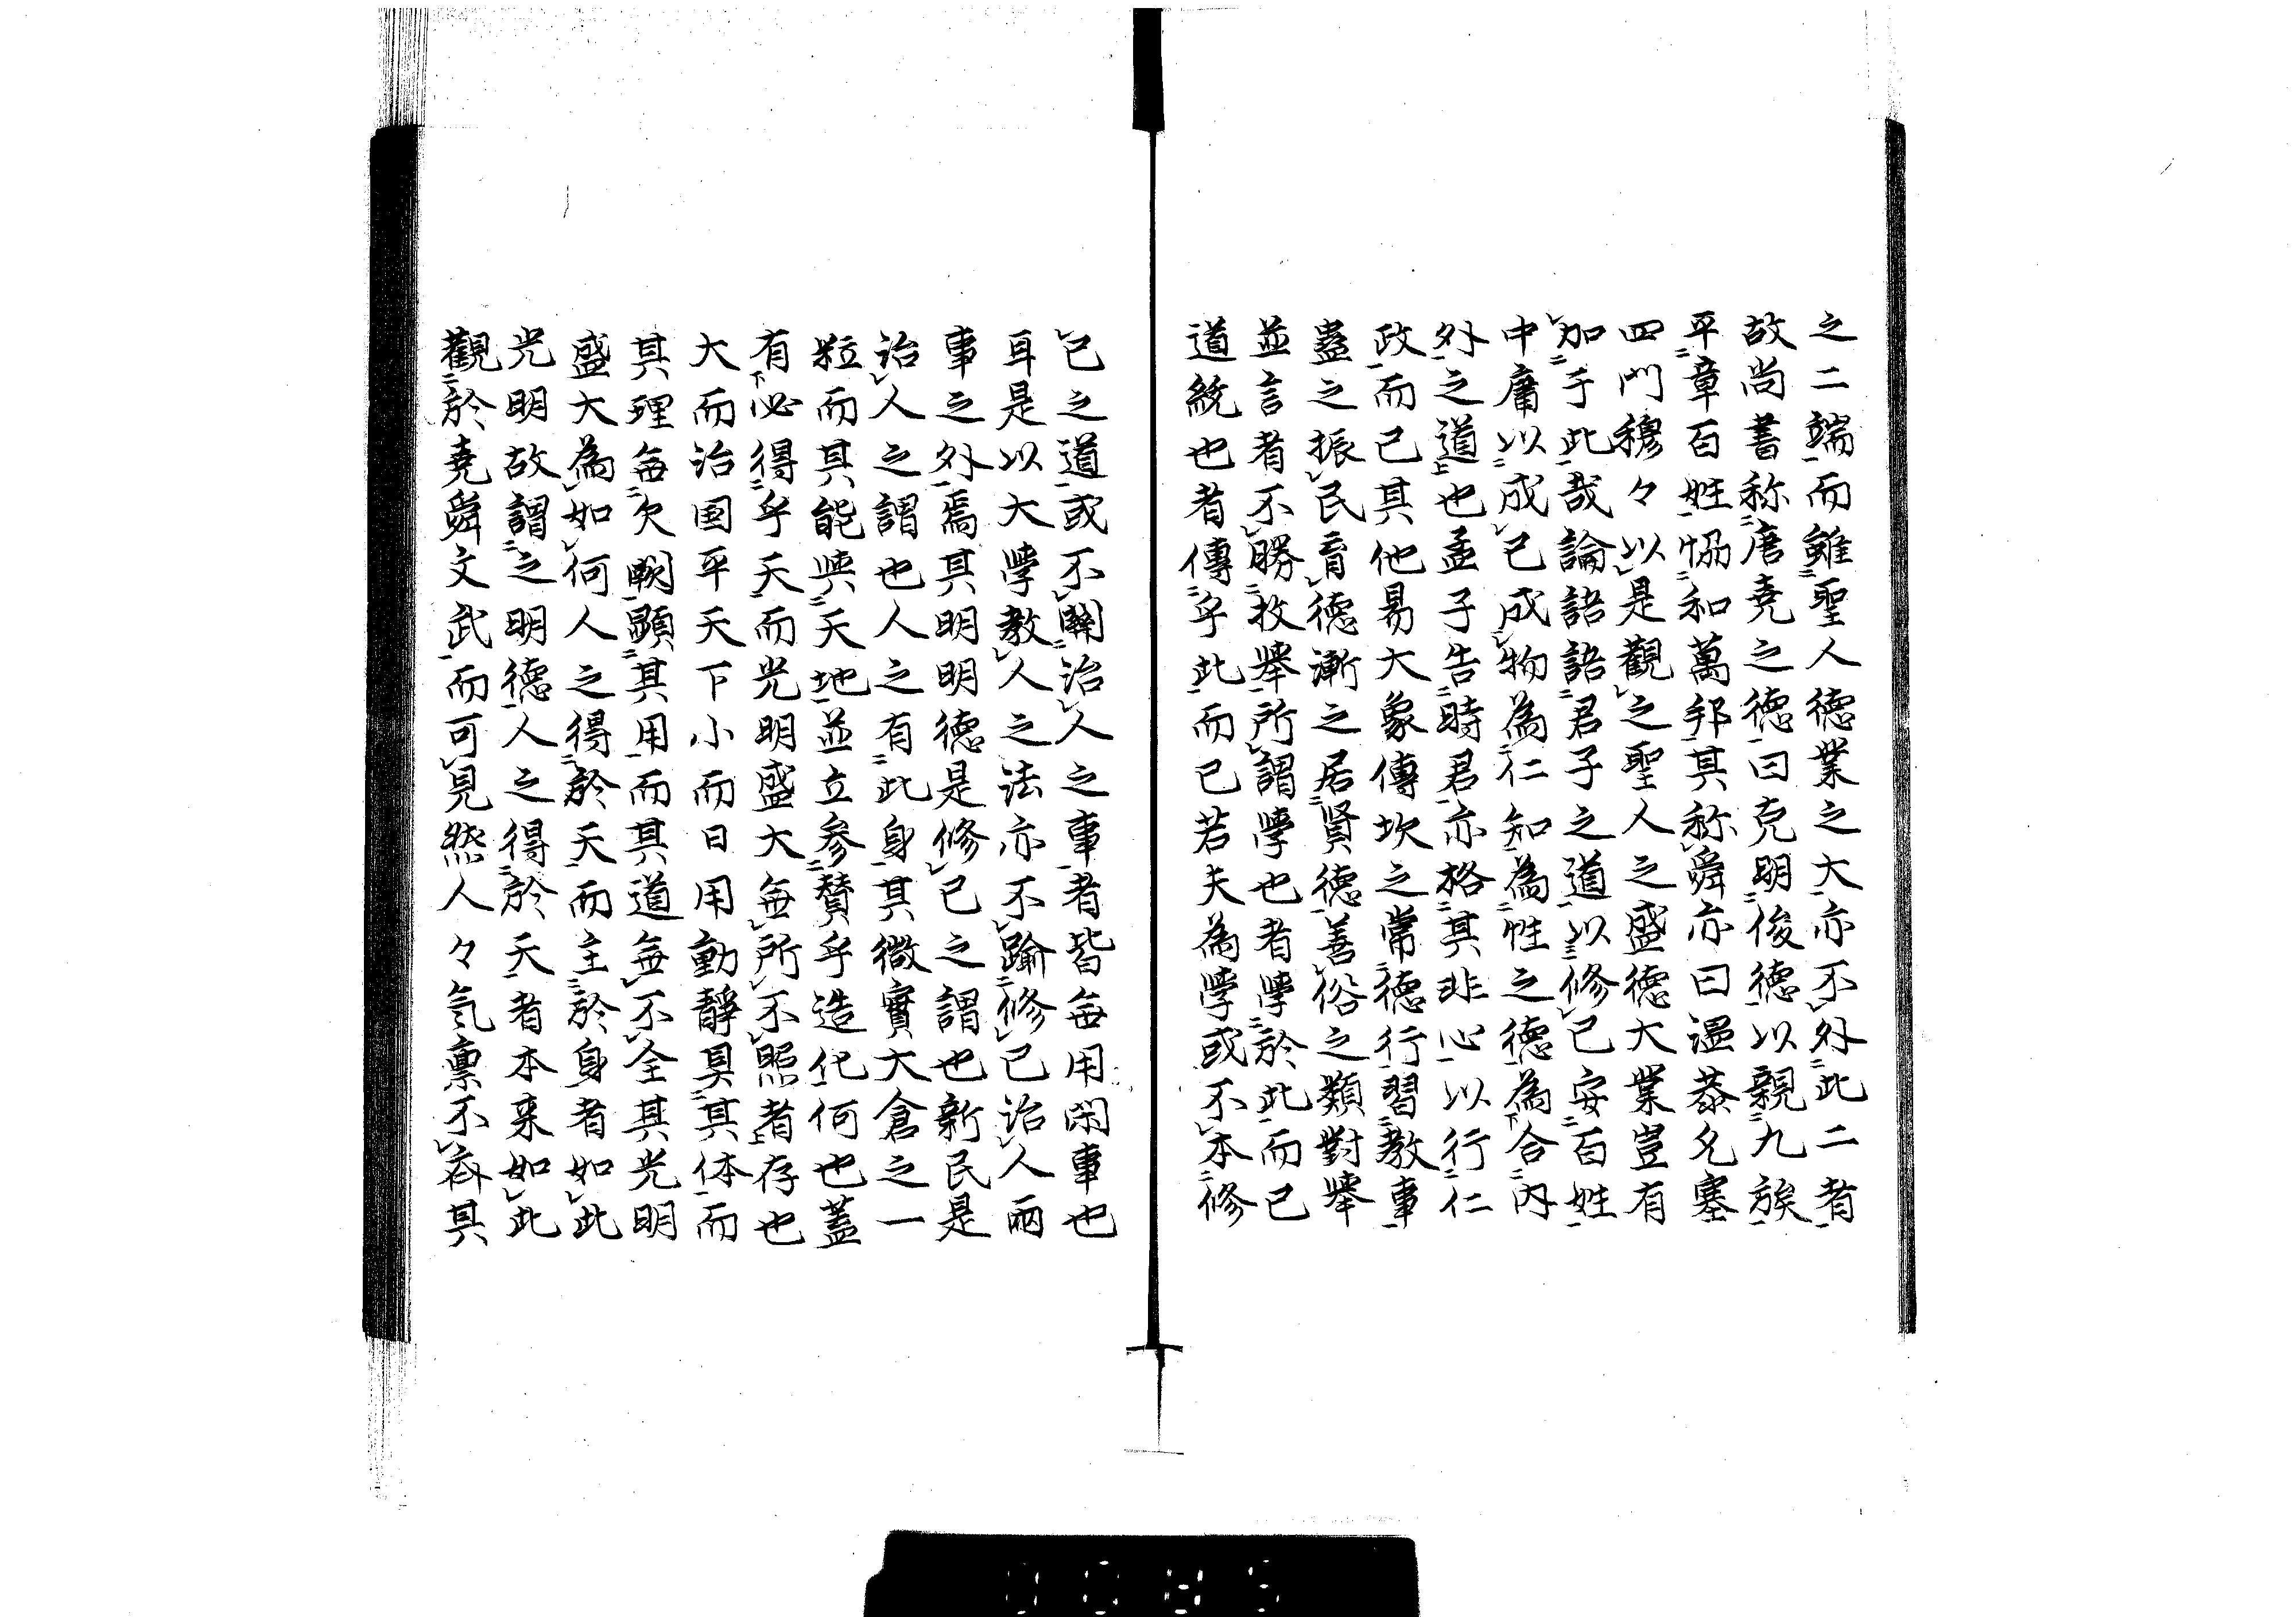 之二端而雖聖人德業之大亦不外此二者
故尚書称唐堯之德曰克明俊德以親九族
平章百姓恊和萬邦其称舜亦曰温恭允塞
四門穆々以是觀之聖人之盛德大業豈有
加于此哉論語語君子之道以修己安百姓
中庸以成己成物為仁知為性之德為合内
外之道也孟子告時君亦格其非心以行仁
政而已其他易大象傳坎之常德行習教事
蠱之振民育德漸之居賢德善俗之類對挙
並言者不勝枚挙所謂学也者学於此而已
道統也者傳乎此而已若夫為学或不本修
己之道或不關治人之事者皆無用閑事也
耳是以大学教人之法亦不踰修己治人兩
事之外焉其明明德是修己之謂也新民是
治人之謂也人之有此身其微實大倉之一
粒而其能與天地並立参賛乎造化何也蓋
有必得乎天而光明盛大無所不照者存也
大而治国平天下小而日用動靜具其体而
其理無欠闕顕其用而其道無不全其光明
盛大為如何人之得於天而主於身者如此
光明故謂之明德人之得於天者本来如此
觀於堯舜文武而可見然人々気禀不齐其